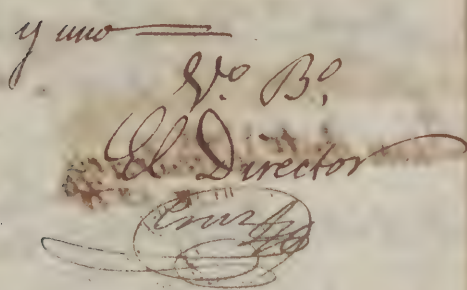 y uno
V.º B.º
El Director